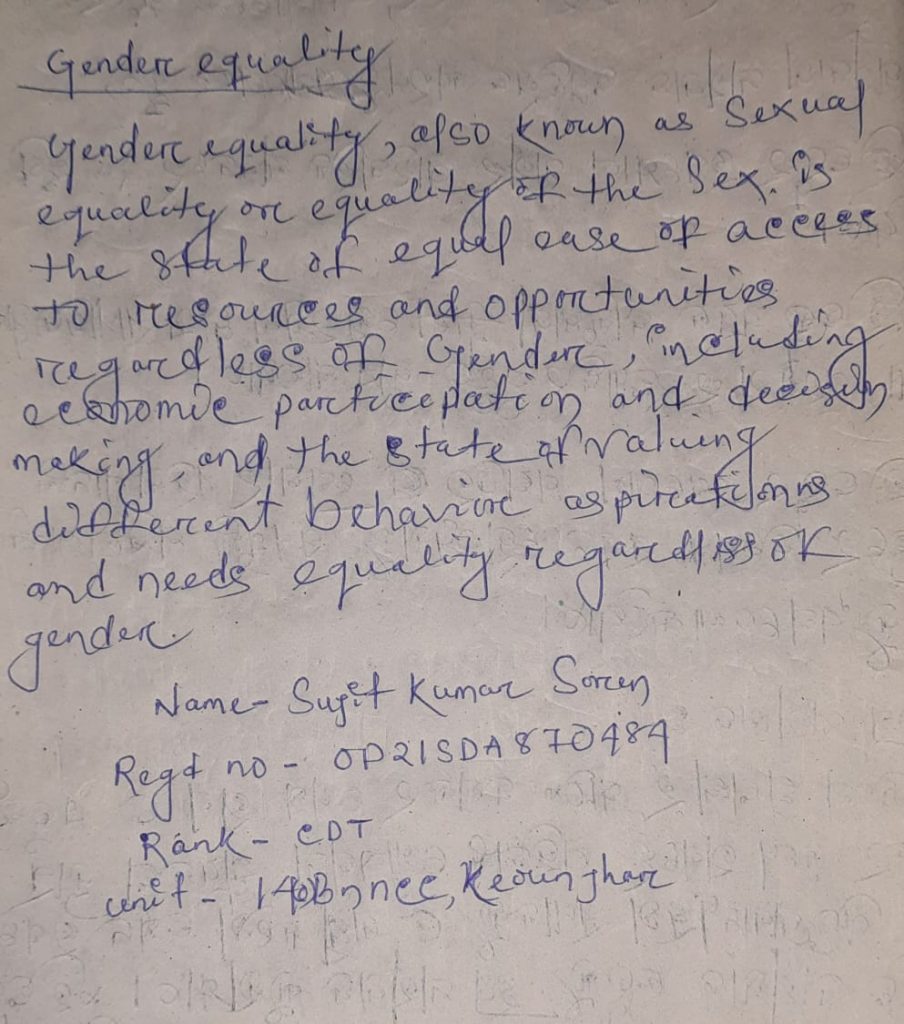 Gender equality
Gender equality, also known as Sexual
equality or equality of the Sex. is
the state of equal ease of access
to resources and opportunities
regardless of Gender, including
economic participation and decision
making, and the state of valuing
different behavior aspirations
and needs equality regardless of
gender.
Name- Sujit Kumar Soren
Regd no - OD21SDA870484
Rank - CDT
unit - 140Bn ncc, Keounjhar